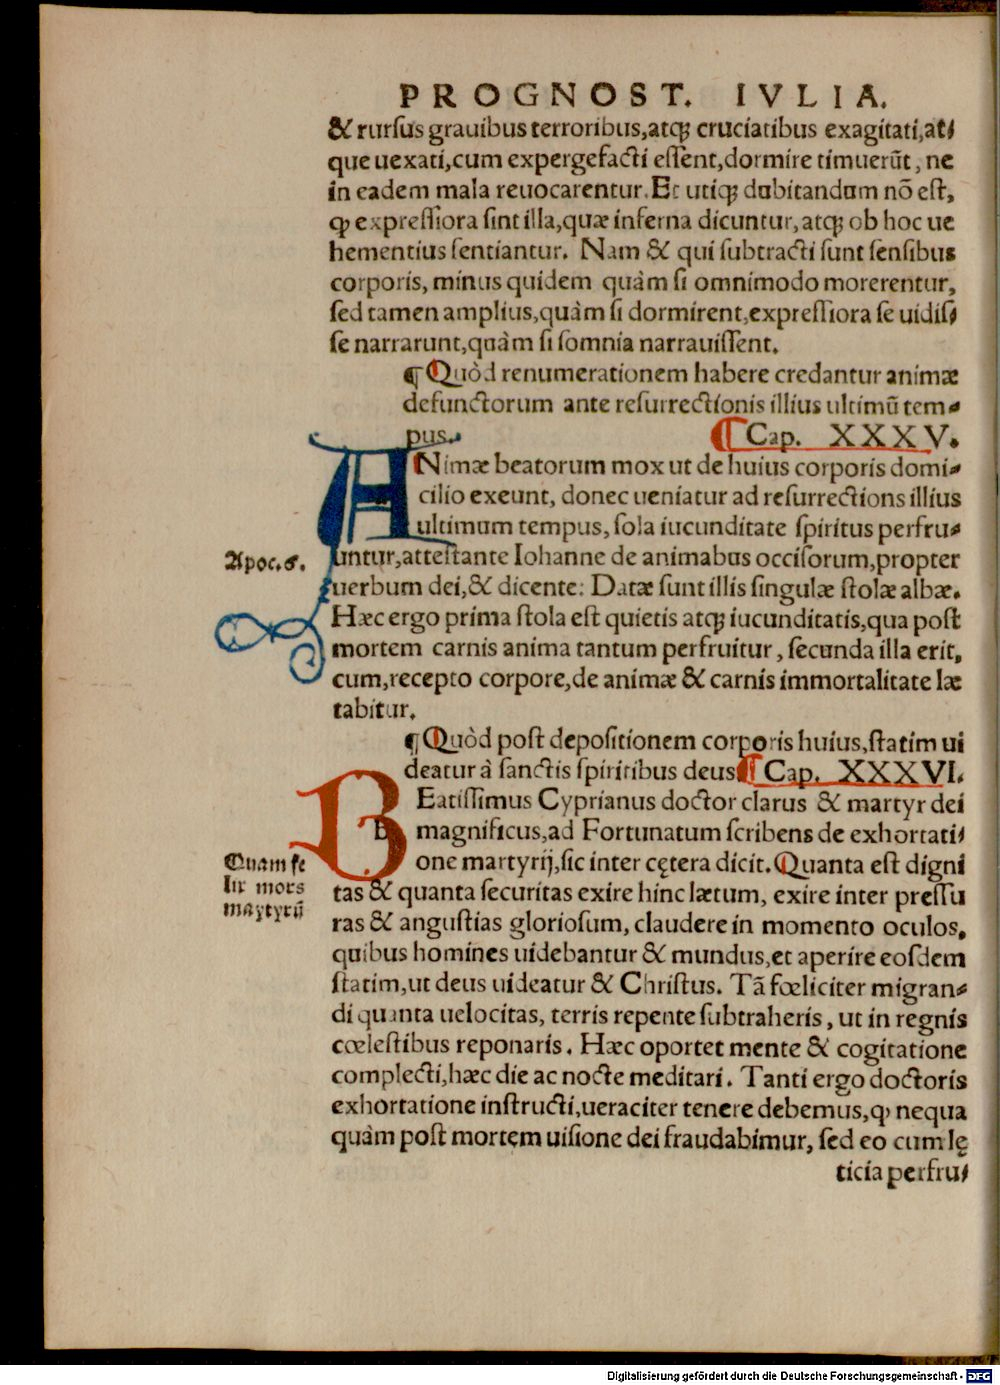 PROGNOST. IVLIA.
& rursus grauibus terroribus,atq; cruciatibus exagitati,at/
que uexati,cum expergefacti essent,dormire timuerūt, ne
in eadem mala reuocarentur.Et utiq; dubitandum nō est,
ꝙ expressiora sint illa,quæ inferna dicuntur,atq; ob hoc ue
hementius sentiantur. Nam & qui subtracti sunt sensibus
corporis, minus quidem quàm si omnimodo morerentur,
sed tamen amplius,quàm si dormirent,expressiora se uidis/
se narrarunt,quàm si somnia narrauissent.
¶ Quòd renumerationem habere credantur animæ
defunctorum ante resurrectionis illius ultimū tem-
pus. ¶ Cap. XXXV.
ANimæ beatorum mox ut de huius corporis domi-
cilio exeunt, donec ueniatur ad resurrections illius
ultimum tempus, sola iucunditate spiritus perfru-
Apoc.6.
untur,attestante Iohanne de animabus occisorum,propter
uerbum dei,& dicente: Datæ sunt illis singulæ stolæ albæ.
Hæc ergo prima stola est quietis atq; iucunditatis,qua post
mortem carnis anima tantum perfruitur, secunda illa erit,
cum,recepto corpore,de animæ & carnis immortalitate læ
tabitur.
¶ Quòd post depositionem corporis huius,statim ui
deatur à sanctis spiritibus deus ¶ Cap. XXXVI.
BEatissimus Cyprianus doctor clarus & martyr dei
magnificus,ad Fortunatum scribens de exhortati/
one martyrij,sic inter cętera dicit. Quanta est digni
Quam fe
lix mors
martyrū
tas & quanta securitas exire hinc lætum, exire inter pressu
ras & angustias gloriosum, claudere in momento oculos,
quibus homines uidebantur & mundus,et aperire eosdem
statim,ut deus uideatur & Christus. Tā fœliciter migran-
di quanta uelocitas, terris repente subtraheris, ut in regnis
cœlestibus reponaris. Hæc oportet mente & cogitatione
complecti,hæc die ac nocte meditari. Tanti ergo doctoris
exhortatione instructi,ueraciter tenere debemus,ꝙ nequa
quàm post mortem uisione dei fraudabimur, sed eo cum lę
ticia perfru/
Digitalisierung gefördert durch die Deutsche Forschungsgemeinschaft - DFG